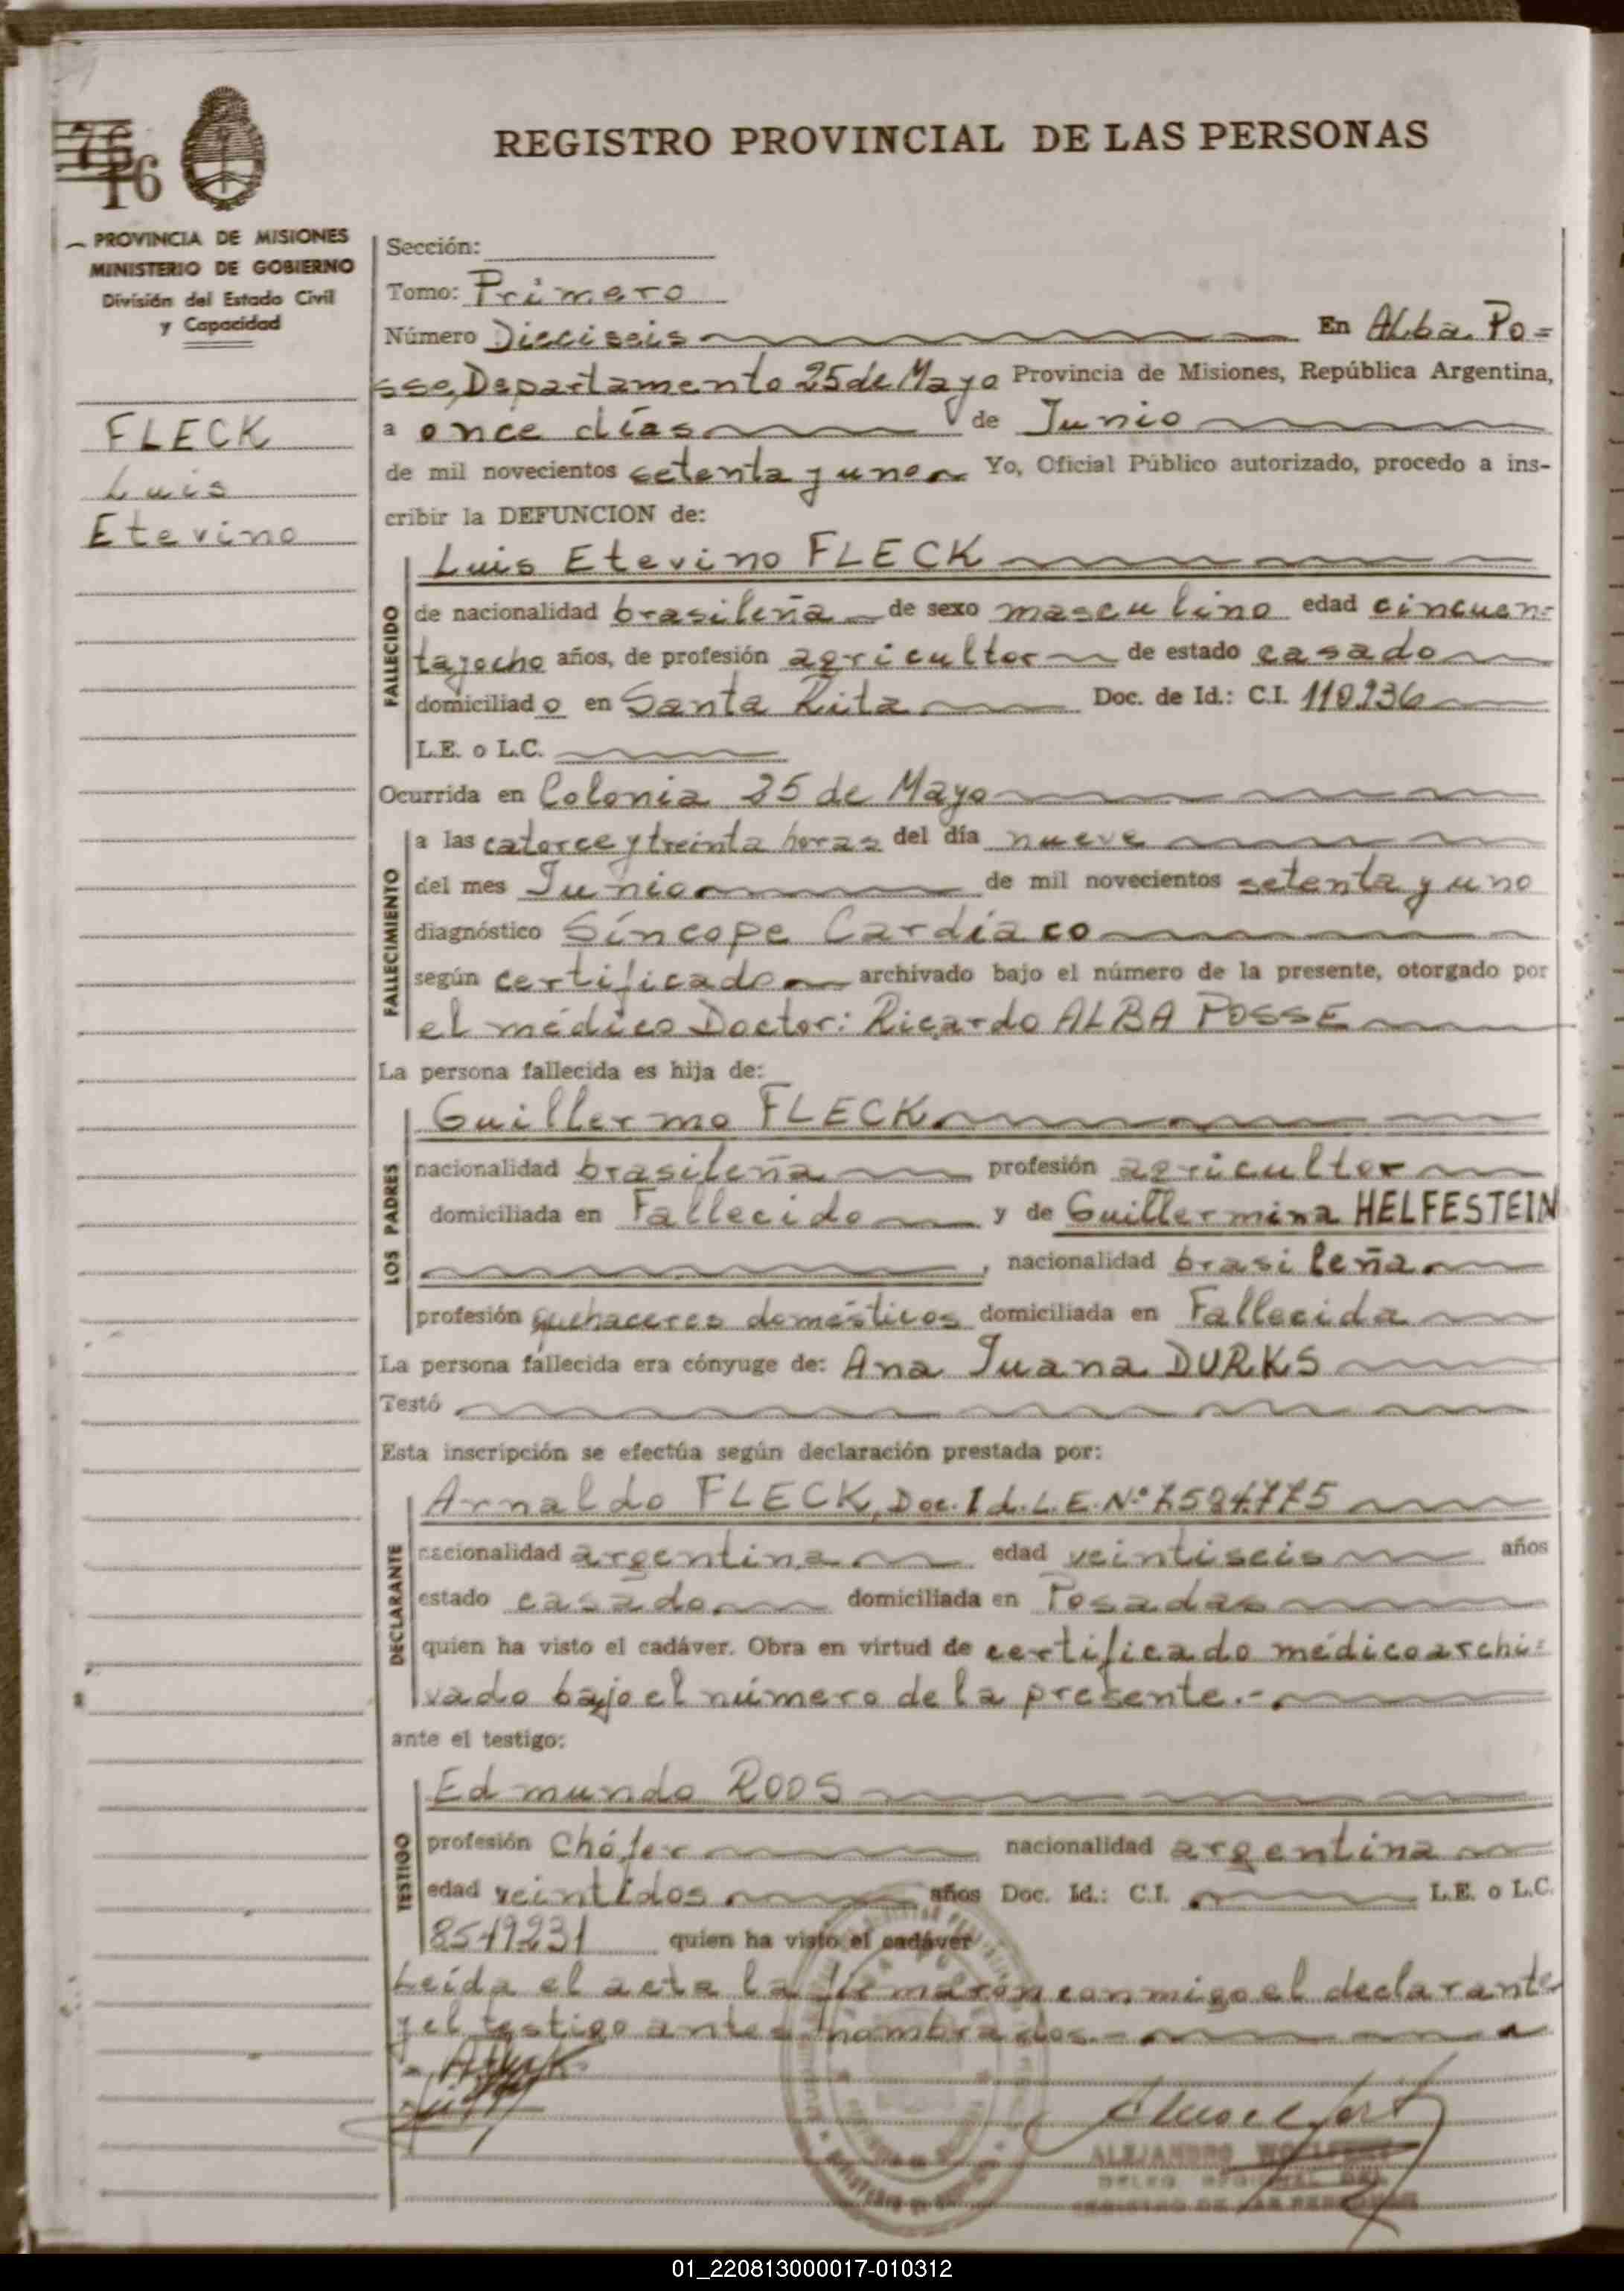 76
16
REGISTRO PROVINCIAL DE LAS PERSONAS
PROVINCIA DE MISIONES
MINISTERIO DE GOBIERNO
División del Estado Civil
y Capacidad
FLECK
Luis
Etevino
Sección:
Tomo: Primero
Número Dieciseis En Alba Po=
sse, Departamento 25 de Mayo Provincia de Misiones, República Argentina,
a once días de Junio
de mil novecientos setenta y uno Yo, Oficial Público autorizado, procedo a ins-
cribir la DEFUNCION de:
FALLECIDO
Luis Etevino FLECK
de nacionalidad brasileña de sexo masculino edad cincuen=
tayocho años, de profesión agricultor de estado casado
domiciliado en Santa Rita Doc. de Id.: C.I. 110.236
L.E. o L.C.
Ocurrida en Colonia 25 de Mayo
FALLECIMIENTO
a las catorce y treinta horas del día nueve
del mes Junio de mil novecientos setenta y uno
diagnóstico Síncope Cardíaco
según certificado archivado bajo el número de la presente, otorgado por
el médico Doctor: Ricardo ALBA POSSE
La persona fallecida es hija de:
LOS PADRES
Guillermo FLECK
nacionalidad brasileña profesión agricultor
domiciliada en Fallecido y de Guillermina HELFESTEIN
, nacionalidad brasileña
profesión quehaceres domésticos domiciliada en Fallecida
La persona fallecida era cónyuge de: Ana Juana DURKS
Testó
Esta inscripción se efectúa según declaración prestada por:
DECLARANTE
Arnaldo FLECK, Doc. Id. L.E. Nº 7.584.775
nacionalidad argentina edad veintiseis años
estado casado domiciliada en Posadas
quien ha visto el cadáver. Obra en virtud de certificado médico archi=
vado bajo el número de la presente.-
ante el testigo:
TESTIGO
Edmundo ROOS
profesión Chófer nacionalidad argentina
edad veintidos años Doc. Id.: C.I. L.E. o L.C.
8549231 quien ha visto el cadáver
Leída el acta la firmarón conmigo el declarante
y el testigo antes nombrados.-
ALEJANDRO
REGISTRO DE LAS PERSONAS
01_220813000017-010312